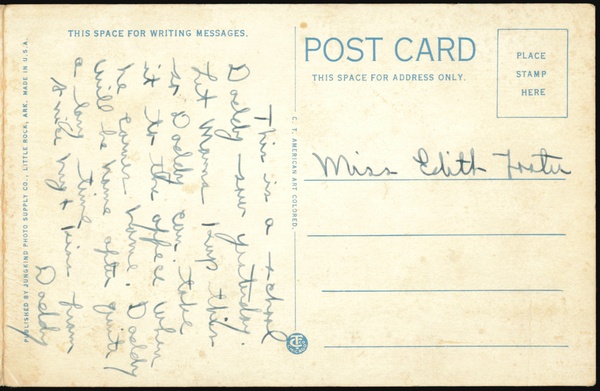 THIS SPACE FOR WRITING MESSAGES.
This is a school
Daddy saw yesterday.
Let Mama keep this
so Daddy can take
it to the office when
he comes home. Daddy
will be home after quite
a long time
hug + kiss from
Daddy
PUBLISHED BY JUNGKIND PHOTO SUPPLY CO., LITTLE ROCK, ARK. MADE IN U.S.A.
C. T. AMERICAN ART COLORED.
POST CARD
THIS SPACE FOR ADDRESS ONLY.
PLACE
STAMP
HERE
Miss Edith Foster